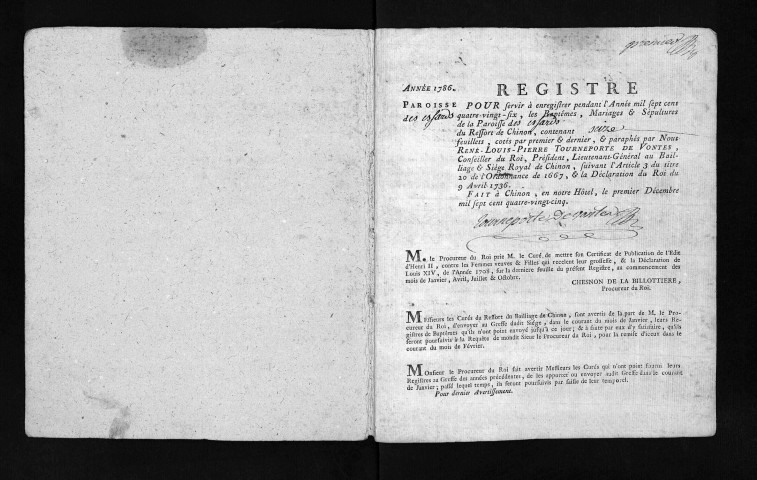 premier
ANNÉE 1786.
REGISTRE
PAROISSE
des essards
POUR servir à enregistrer pendant l'Année mil sept cens
quatre-vingt-six, les Baptêmes, Mariages & Sépultures
de la Paroisse des essards
du Ressort de Chinon, contenant onze
feuillets, cotés par premier & dernier, & paraphés par Nous
RENÉ-LOUIS-PIERRE TOURNEPORTE DE VONTES,
Conseiller du Roi, Président, Lieutenant-Général au Bail-
liage & Siége Royal de Chinon, suivant l'Article 3 du titre
20 de l'Ordonnance de 1667, & la Déclaration du Roi du
9 Avril 1736.
FAIT à Chinon, en notre Hôtel, le premier Décembre
mil sept cent quatre-vingt-cinq.
Tourneporte De vontes
M. le Procureur du Roi prie M. le Curé de mettre son Certificat de Publication de l'Edit
d'Henri II, contre les Femmes veuves & Filles qui recelent leur grossesse, & la Déclaration de
Louis XIV, de l'Année 1708, sur la derniere feuille du présent Registre, au commencement des
mois de Janvier, Avril, Juillet & Octobre.
CHESNON DE LA BILLOTTIERE,
Procureur du Roi.
Messieurs les Curés du Ressort du Bailliage de Chinon, sont avertis de la part de M. le Pro-
cureur du Roi, d'envoyer au Greffe dudit Siége, dans le courant du mois de Janvier, leurs Re-
gistres de Baptêmes qu'ils n'ont point envoyé jusqu'à ce jour; & à faute par eux d'y satisfaire, qu'ils
seront poursuivis à la Requête de mondit Sieur le Procureur du Roi, pour la remise d'iceux dans le
courant du mois de Février.
Monsieur le Procureur du Roi fait avertir Messieurs les Curés qui n'ont point fourni leurs
Registres au Greffe des années précédentes, de les apporter ou envoyer audit Greffe dans le courant
de Janvier; passé lequel temps, ils seront poursuivis par saisie de leur temporel.
Pour dernier Avertissement.